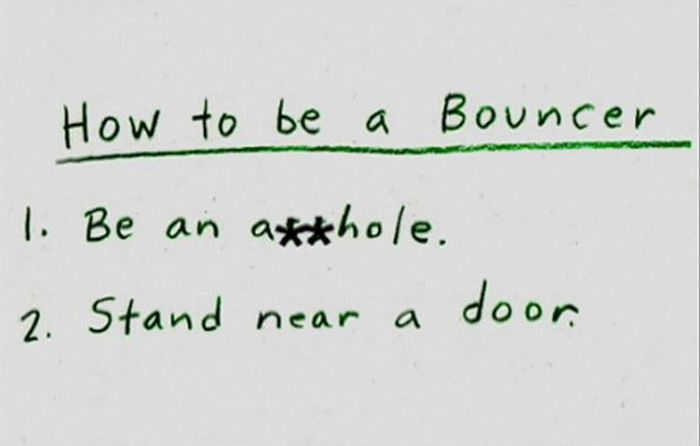 How to be a Bouncer
1. Be an a**hole.
2. Stand near a door.